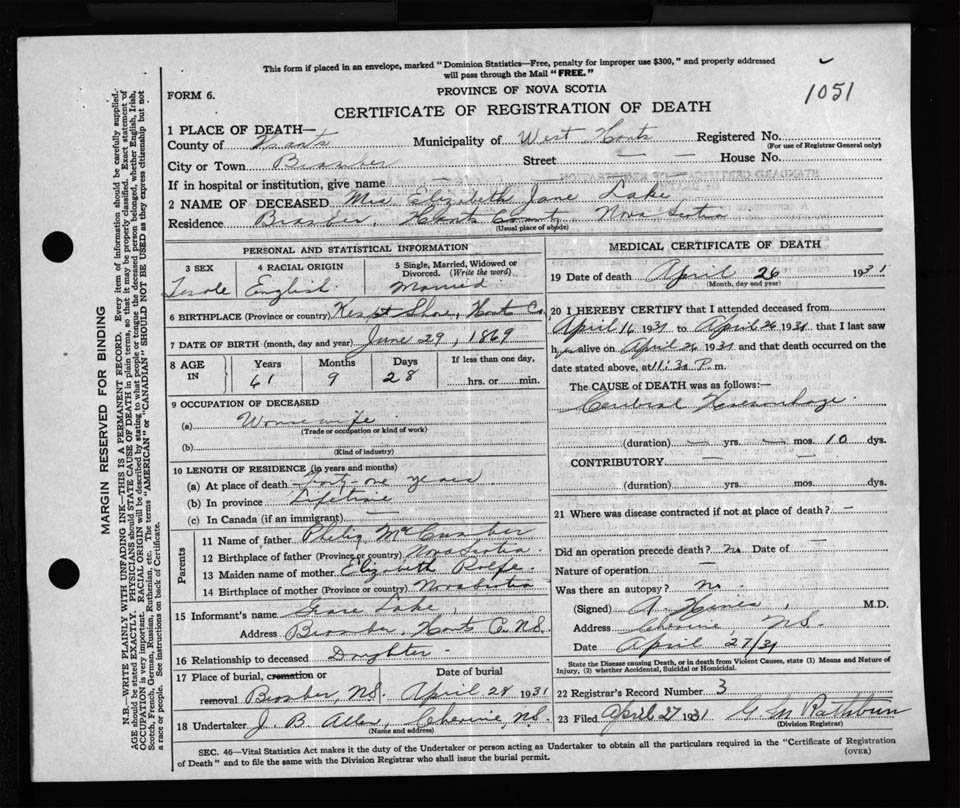 This form if placed in an envelope, marked "Dominion Statistics—Free, penalty for improper use $300," and properly addressed
will pass through the Mail "FREE."
1051
FORM 6.
PROVINCE OF NOVA SCOTIA
CERTIFICATE OF REGISTRATION OF DEATH
1 PLACE OF DEATH—
County of Hants Municipality of West Hants Registered No.
(For use of Registrar General only)
City or Town Bramber Street — — House No.
If in hospital or institution, give name —
2 NAME OF DECEASED Mrs. Elizabeth Jane Lake
Residence Bramber, Hants County Nova Scotia
(Usual place of abode)
PERSONAL AND STATISTICAL INFORMATION
3 SEX 4 RACIAL ORIGIN 5 Single, Married, Widowed or
Divorced. (Write the word)
Female English Married
6 BIRTHPLACE (Province or country) Kempt Shore, Hants Co
7 DATE OF BIRTH (month, day and year) June 29, 1869
8 AGE IN Years Months Days If less than one day,
61 9 28 hrs. or min.
9 OCCUPATION OF DECEASED
(a) Housewife
(Trade or occupation or kind of work)
(b)
(Kind of industry)
10 LENGTH OF RESIDENCE (in years and months)
(a) At place of death Forty-one years
(b) In province Lifetime
(c) In Canada (if an immigrant) —
Parents
11 Name of father Philip McCumber
12 Birthplace of father (Province or country) Nova Scotia
13 Maiden name of mother Elizabeth Rolfe
14 Birthplace of mother (Province or country) Nova Scotia
15 Informant's name Grace Lake,
Address Bramber, Hants C. N.S.
16 Relationship to deceased Daughter
17 Place of burial, cremation or Date of burial
removal Bramber, N.S. April 28 1931
18 Undertaker J. B. Allen, Cheverie, N.S.
(Name and address)
MEDICAL CERTIFICATE OF DEATH
19 Date of death April 26 1931
(Month, day and year)
20 I HEREBY CERTIFY that I attended deceased from
April 16 1931 to April 26 1931 that I last saw
her alive on April 26 1931 and that death occurred on the
date stated above, at 11:30 P. m.
The CAUSE of DEATH was as follows:—
Cerebral Haemorrhage.
(duration) — yrs. — mos. 10 dys.
CONTRIBUTORY — —
(duration) yrs. mos. dys.
21 Where was disease contracted if not at place of death? —
Did an operation precede death? no Date of —
Nature of operation —
Was there an autopsy? no.
(Signed) A. M.D.
Address Cheverie, N.S.
Date April 27/31
State the Disease causing Death, or in death from Violent Causes, state (1) Means and Nature of
Injury, (2) whether Accidental, Suicidal or Homicidal.
22 Registrar's Record Number 3
23 Filed April 27 1931 G. M. Rathburn
(Division Registrar)
SEC. 46—Vital Statistics Act makes it the duty of the Undertaker or person acting as Undertaker to obtain all the particulars required in the "Certificate of Registration
of Death" and to file the same with the Division Registrar who shall issue the burial permit.
(OVER)
MARGIN RESERVED FOR BINDING
N.B.—WRITE PLAINLY WITH UNFADING INK—THIS IS A PERMANENT RECORD. Every item of information should be carefully supplied.
AGE should be stated EXACTLY. PHYSICIANS should STATE CAUSE OF DEATH in plain terms, so that it may be properly classified. Exact statement of
OCCUPATION is very important. RACIAL ORIGIN will be described by stating to what people or tongue the deceased person belonged, whether English, Irish,
Scotch, French, German, Russian, Ruthenian, etc. The terms "AMERICAN" or "CANADIAN" SHOULD NOT BE USED as they express citizenship but not
a race or people. See instructions on back of Certificate.